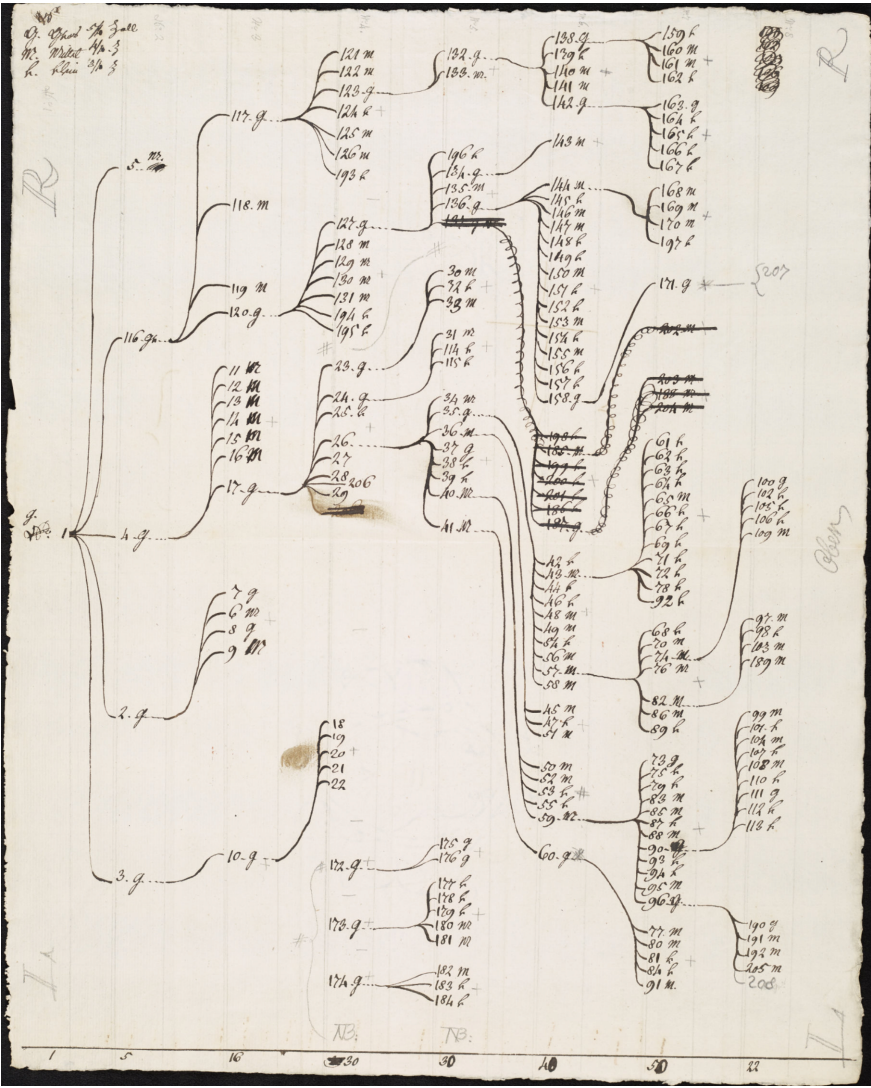 g. Gros 5/4 Zoll
m. Mittel 4/4 Z
k. klein 3/4 Z
R
R
g.
1
5. m.
116. gr.
4. g.
2. g
3. g
117. g.
118. m
119 m
120. g
11 m
12 m
13 m
14 m
15 m
16 m
17. g
7 g
6 m
8 g
9 m
10. g
121 m
122 m
123. g
124 k
125 m
126 m
193 k
127. g
128 m
129 m
130 m
131 m
194 k
195 k
23. g
24. g
25. k
26
27
28 206
29
18
19
20
21
22
172. g
173. g
174. g
132. g
133. m
196 k
134. g
135. m
136. g
30 m
32 k
33 m
31 m
114 k
115 k
34 m
35. g
36. m
37 g
38 k
39 k
40. m
41. m
175 g
176 g
177 k
178 k
179 k
180 m
181 m
182 m
183 k
184 k
138. g
139 k
140 m
141 m
142. g
143 m
144 m
145 k
146 m
147 m
148 k
149 k
150 m
151 k
152 k
153 m
154 k
155 m
156 k
157 k
158. g
198 k
185. m
199 k
200 k
201 k
186 k
187. g
42 k
43. m
44 k
46 k
48 m
49 m
54 k
56 m
57. m
58 m
45 m
47 k
51 m
50 m
52 m
53 k
55 k
59. m
60. g
159 k
160 m
161 m
162 k
163. g
164 k
165 k
166 k
167 k
168 m
169 m
170 m
197 k
171. g
207
202 m
203 m
188 m
204 m
61 k
62 k
63 k
64 k
65 m
66 k
67 k
69 k
71 k
72 k
78 k
92 k
68 k
70 m
74 m
76 m
82 m
86 m
89 k
73 g
75 k
79 k
83 m
85 m
87 k
88 m
90
93 k
94 k
95 m
96 g
77 m
80 m
81 k
84 k
91 m
100 g
102 k
105 k
106 k
109 m
Oben
97. m
98 k
103 m
189 m
99 m
101. k
104 m
107 k
108 m
110 k
111 g
112 k
113 k
190 g
191 m
192 m
205 m
208
L
L
NB:
NB:
1 5 16 30 30 40 50 22